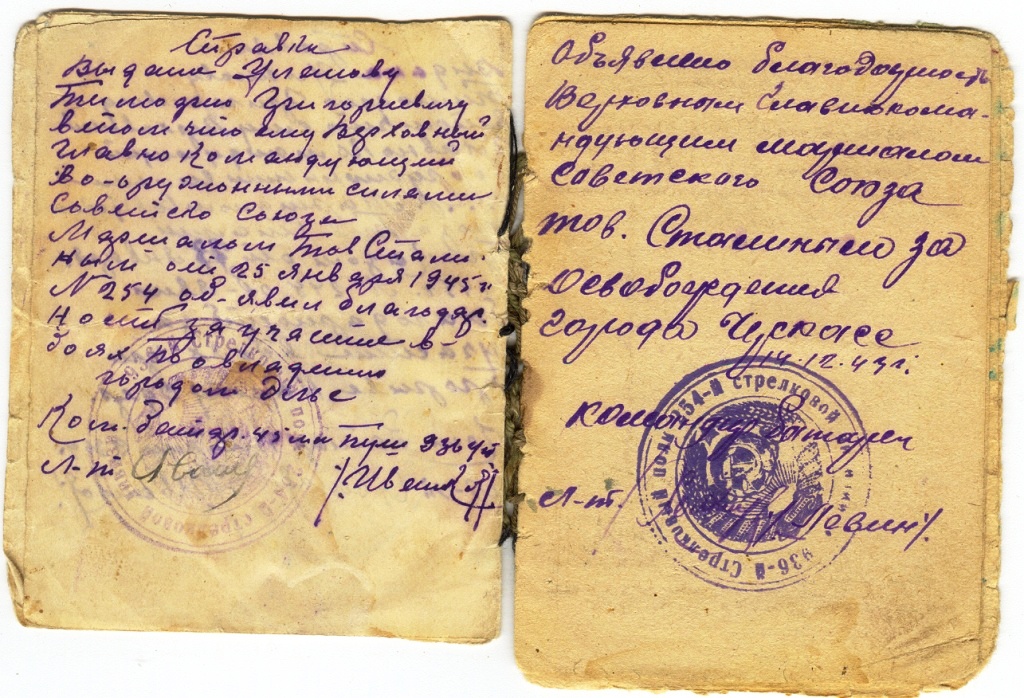 Справка
Выдана Улешову
Тимофию Григориевичу
втом что ему Верховный
Главно Командующий
Во-оружонными силами
Совейсго Союза
Маршалом Тов Стали-
ным от 25 января 1945 г
№ 254 об-явил благодар.
ность за участие в
боях по овладению
городом Эльс
Ком. бат др. 45 мм пуш 936 
Л-т /Ивен
Объявлено благодарность
Верховным Главнокома-
ндующим маршалом
Советского Союза
тов. Сталиным за
Освобождения
города Чускасс
14.12.43 г.
командир батареи
Л-т. /Левин/.
936-й Стрелковый полк 254-й стрелковой